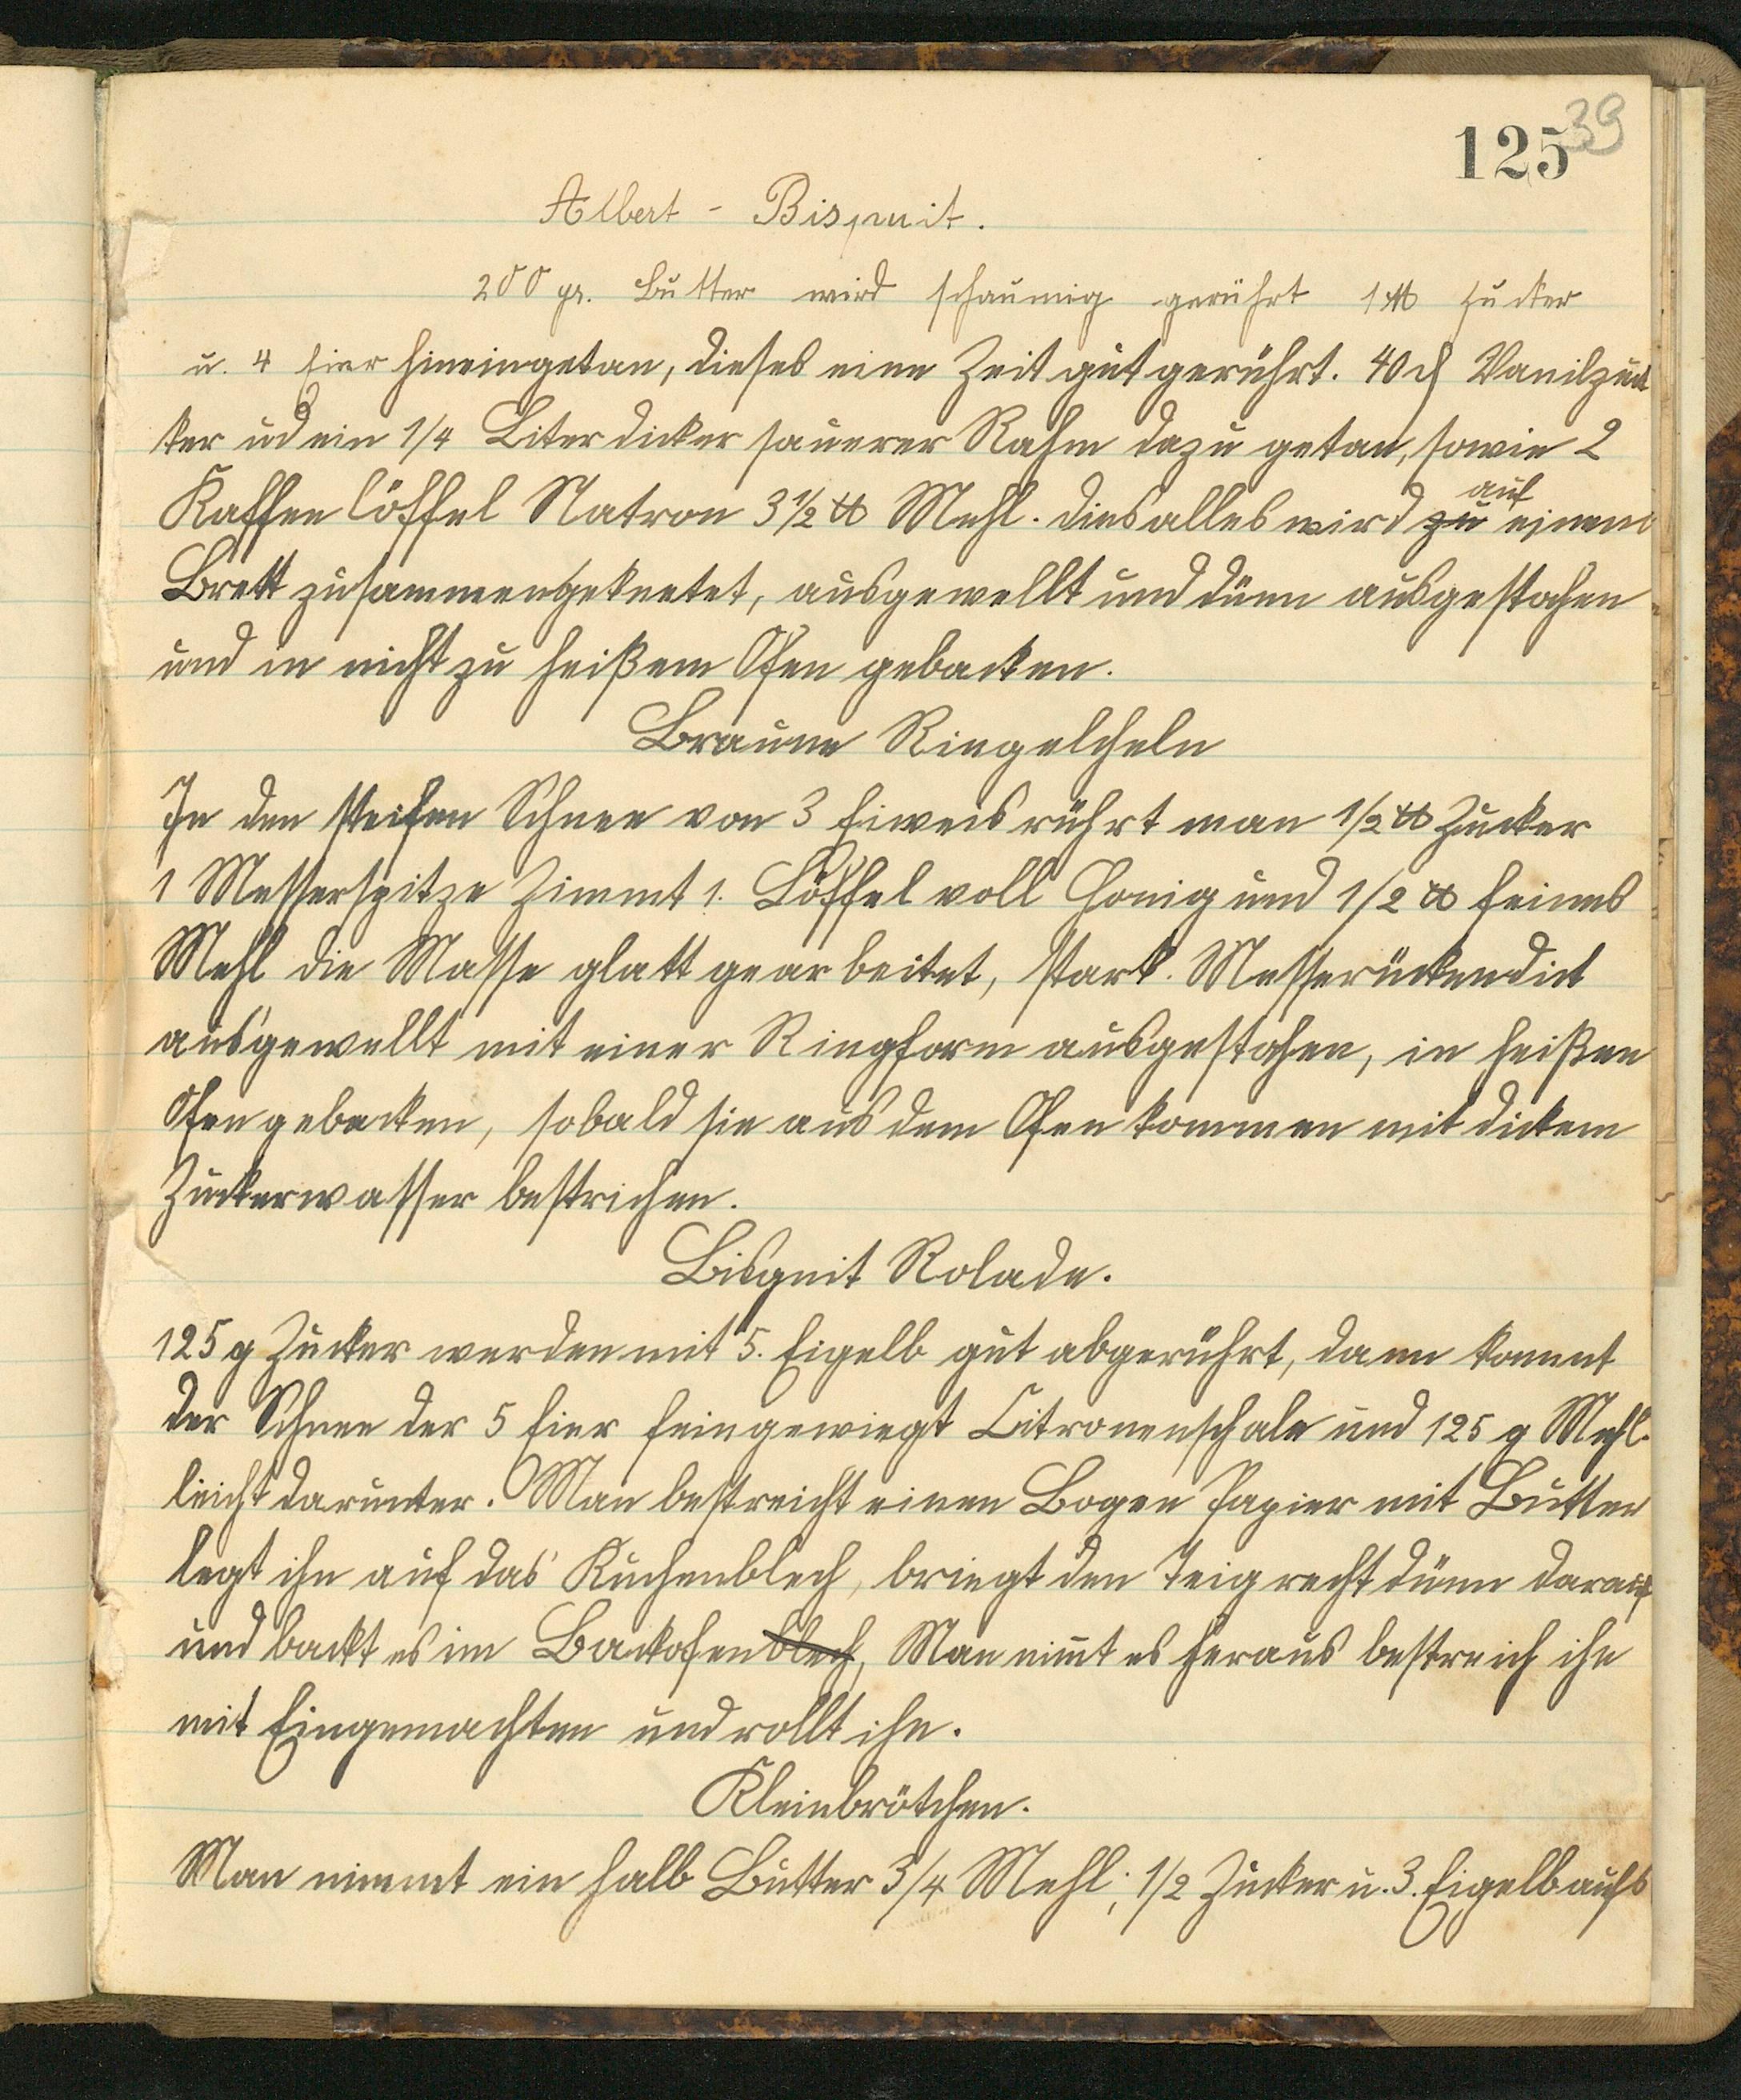 125 39
Albert - Bisquit.
200 gr. Butter wird schaumig gerührt 1 ℔ Zucker
u. 4 Eier hineingetan, dieses eine Zeit gut gerührt. 40 ₰ Vanilzuc
ker ud ein 1/4 Liter dicker sauerer Rahm dazu getan, sowie 2
Kaffee löffel Natron 3 1/2 ℔ Mehl. dies alles wird zu auf einem
Brett zusammengeknetet, ausgewellt und dünn ausgestochen
und in nicht zu heißem Ofen gebacken.
Braune Ringelcheln
In den steifen Schnee von 3 Eiweis rührt man 1/2 ℔ Zucker
1 Messerspitze Zimmt 1. Löffel voll Honig und 1/2 ℔ feines
Mehl die Masse glatt gearbeitet, stark. Messerückendick
ausgewellt mit einer Ringform ausgestochen, in heißen
Ofen gebacken, sobald sie aus dem Ofen kommen mit dickem
Zuckerwasser bestrichen.
Bisquit Rolade.
125 g Zucker werden mit 5. Eigelb gut abgerührt, dann kommt
der Schnee der 5 Eier feingewiegt Citronenschale und 125 g Mehl
leicht darunter. Man bestreicht einen Bogen Papier mit Butter
legt ihn auf das Kuchenblech, bringt den Teig recht dünn darauf
und backt es im Backofenblech, Man nim̅t es heraus bestreich ihn
mit Eingemachten und rollt ihn.
Kleinbrötchen.
Man nimmt ein halb Butter 3/4 Mehl; 1/2 Zucker u. 3. Eigelb aufs